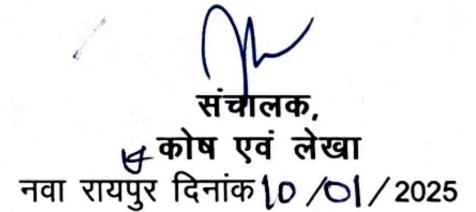 संचालक,
कोष एवं लेखा
नवा रायपुर दिनांक 10 /01/ 2025